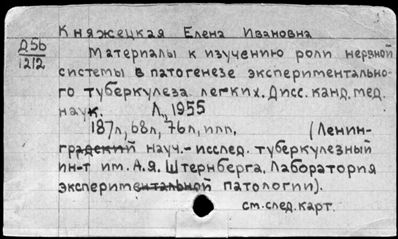 Княжецкая Елена Ивановна
Д56
1212
Материалы к изучению роли нервной
системы в патогенезе экспериментально-
го туберкулеза легких. Дисс. канд. мед.
наук. Л., 1955
187л, 68л, 76л, илл, (Ленин-
градский науч.-исслед. туберкулезный
ин-т им. А.Я. Штернберга. Лаборатория
экспериментальной патологии).
см. след. карт.